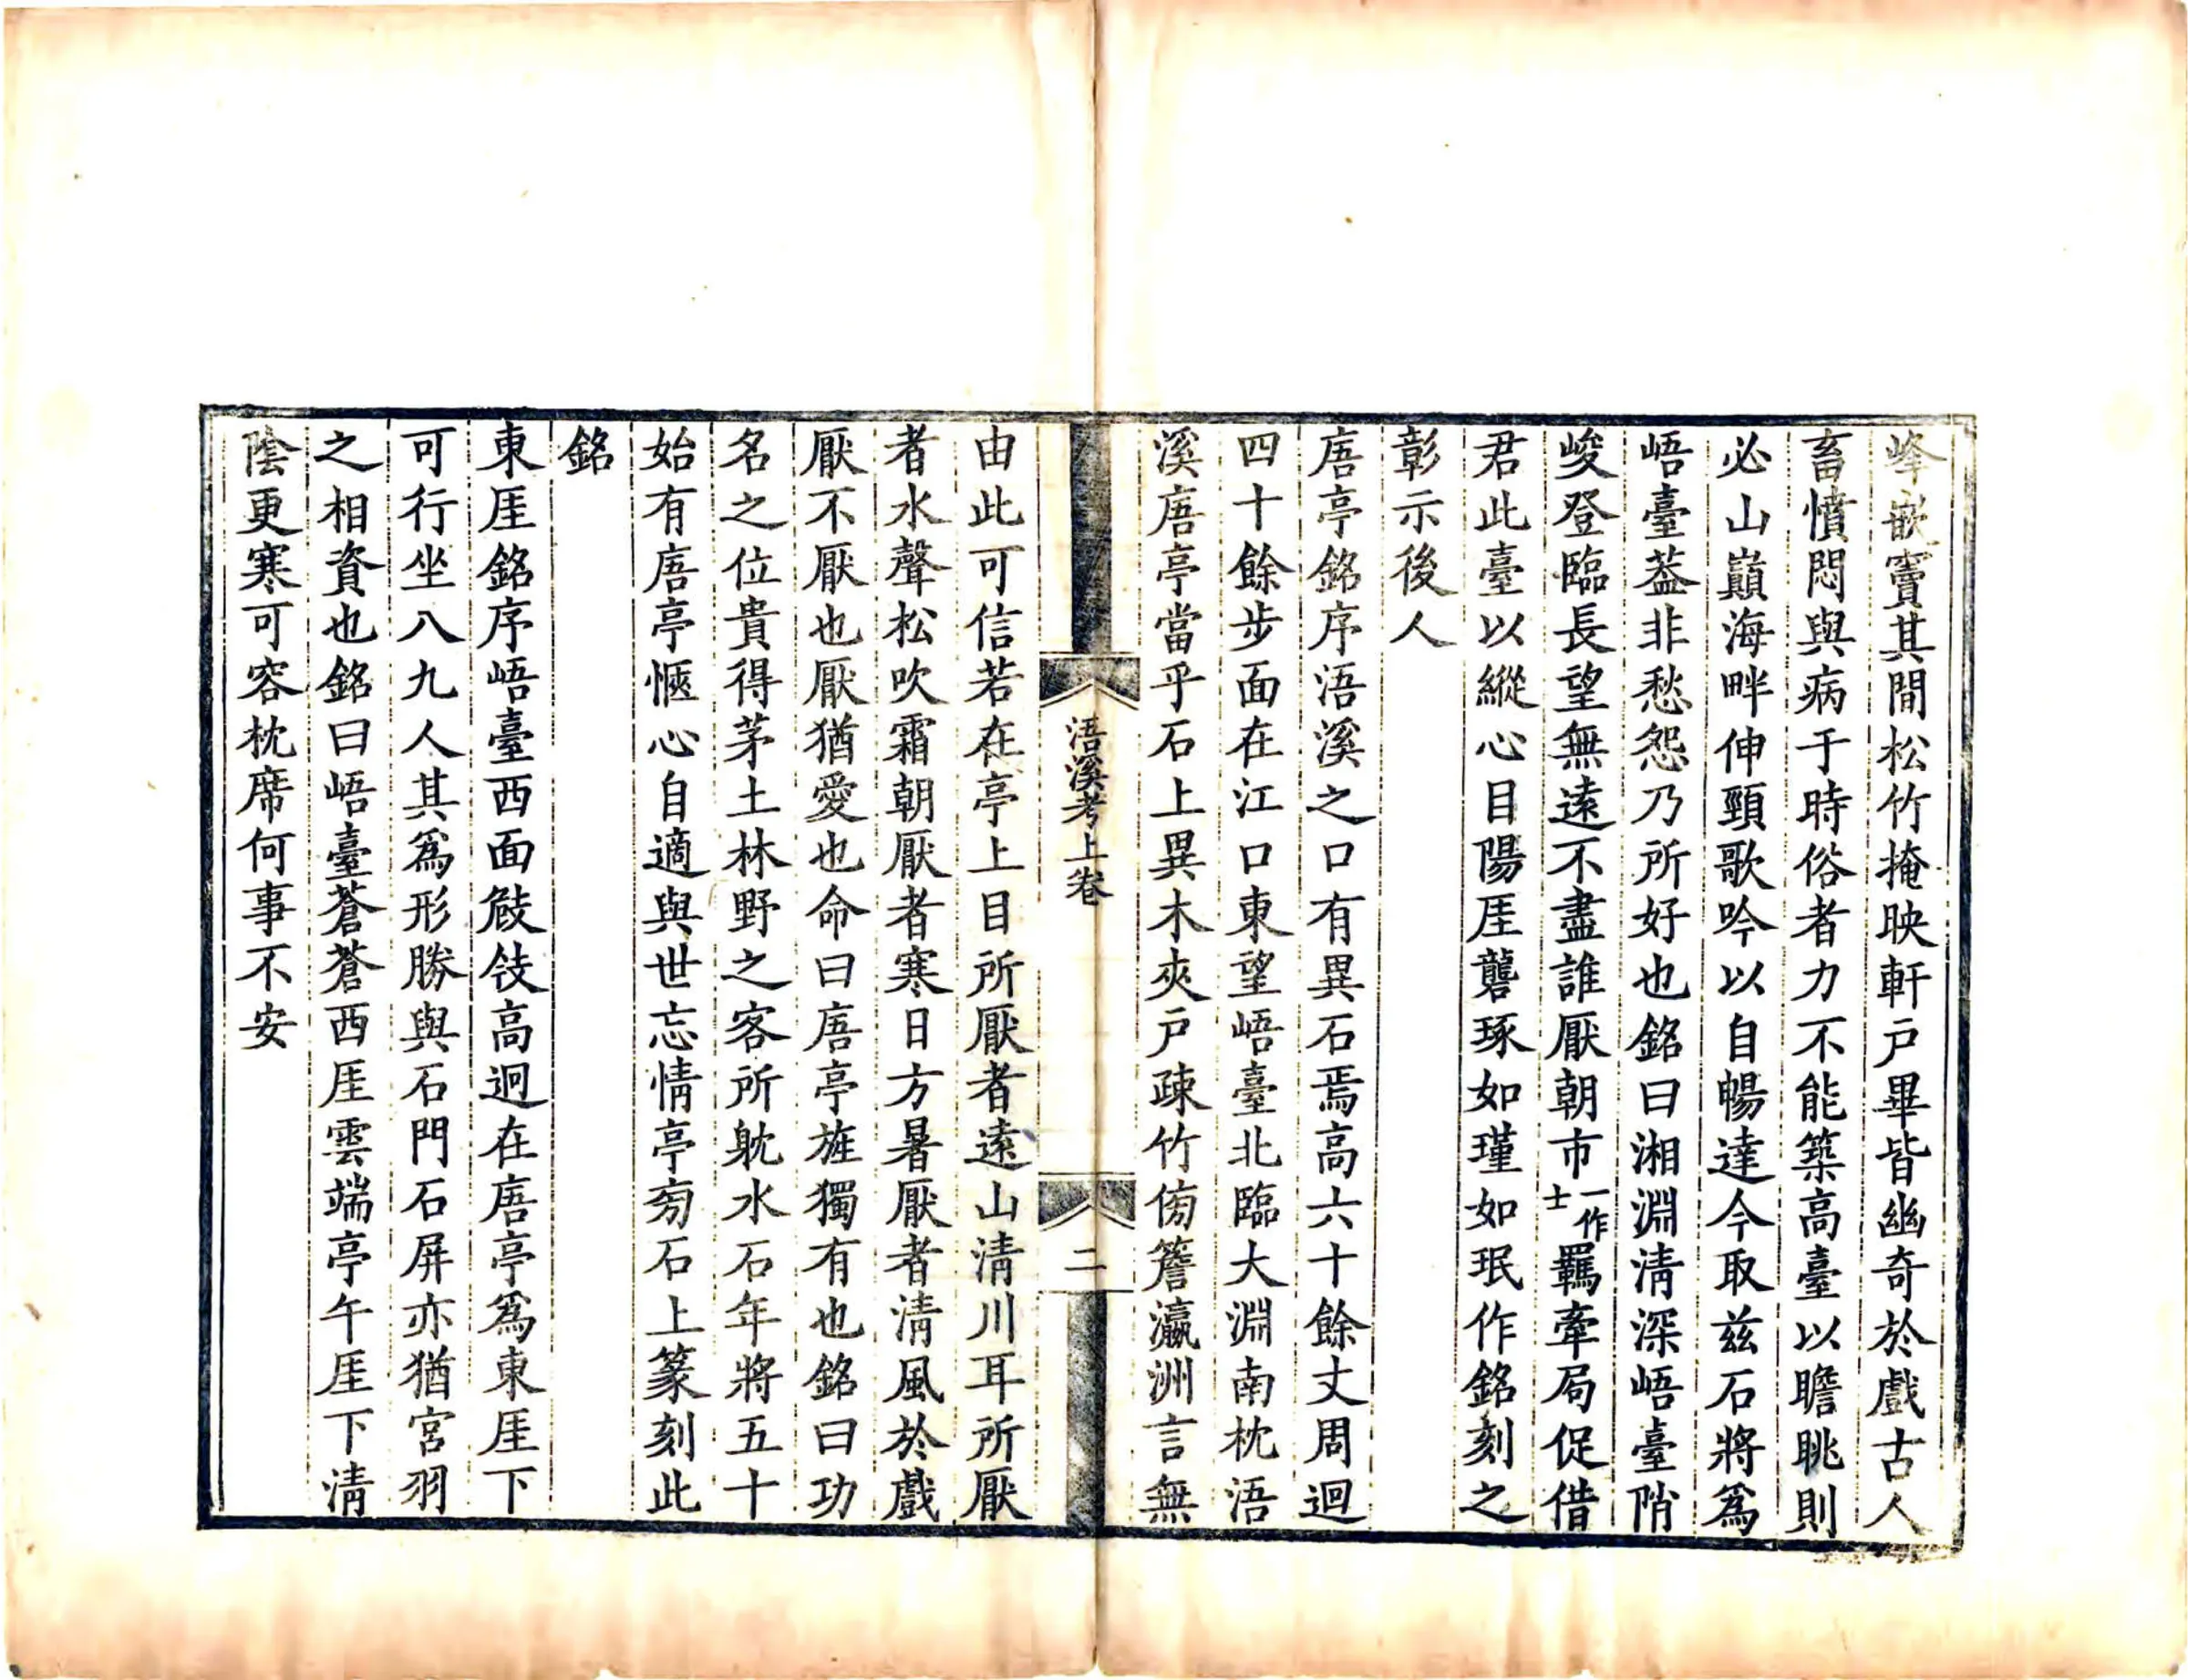 峰嵌竇其間松竹掩映軒戸畢皆幽奇於戲古人
畜憤悶與病于時俗者力不能築高臺以瞻眺則
必山巔海畔伸頸歌吟以自暢達今取兹石將爲
峿臺葢非愁怨乃所好也銘曰湘淵清深峿臺陗
峻登臨長望無遠不盡誰厭朝市一作士羈牽局促借
君此臺以縱心目陽厓礱琢如瑾如珉作銘刻之
彰示後人
㾿亭銘序浯溪之口有異石焉高六十餘丈周迴
四十餘步面在江口東望峿臺北臨大淵南枕浯
溪㾿亭當乎石上異木夾戸疎竹傍簷瀛洲言無
浯溪考上卷
二
由此可信若在亭上目所厭者遠山清川耳所厭
者水聲松吹霜朝厭者寒日方暑厭者清風於戲
厭不厭也厭猶愛也命曰㾿亭旌獨有也銘曰功
名之位貴得茅土林野之客所躭水石年將五十
始有㾿亭愜心自適與世忘情亭旁石上篆刻此
銘
東厓銘序峿臺西面攱高迥在㾿亭爲東厓下
可行坐八九人其爲形勝與石門石屏亦猶宮羽
之相資也銘曰峿臺蒼蒼西厓雲端亭午厓下清
陰更寒可容枕席何事不安